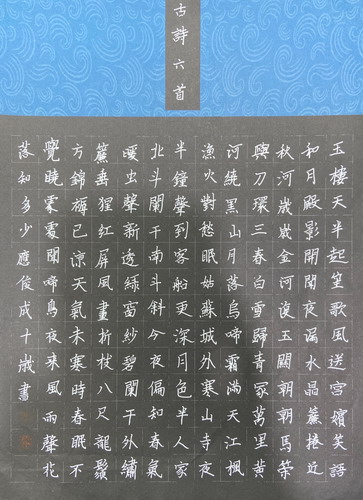 古詩六首
玉樓天半起笙歌風送宮嬪笑語
和月殿影開聞夜漏水晶簾捲近
秋河歲歲金河復玉關朝朝馬策
與刀環三春白雪歸青冢萬里黃
河繞黑山月落烏啼霜滿天江楓
漁火對愁眠姑蘇城外寒山寺夜
半鐘聲到客船更深月色半人家
北斗闌干南斗斜今夜偏知春氣
暖虫聲新透綠窗紗碧闌干外繡
簾垂猩紅屏風畫折枝八尺龍鬚
方錦褥已涼天氣未寒時春眠不
覺曉處處聞啼鳥夜來風雨聲花
落知多少應俊成十歲書